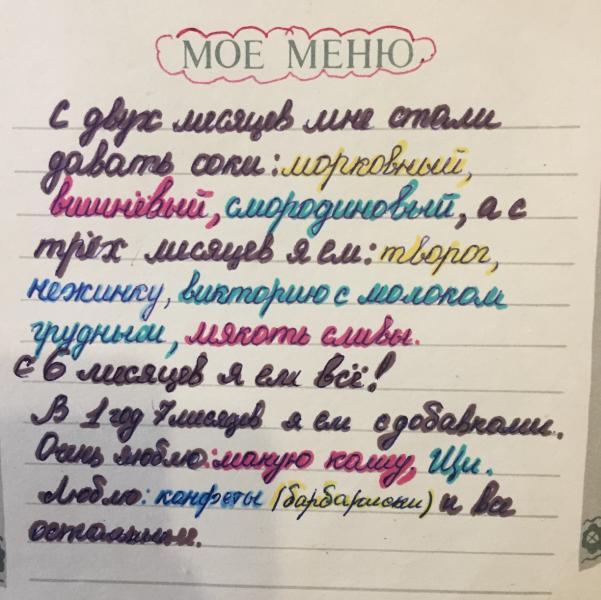 МОЕ МЕНЮ
С двух месяцев мне стали
давать соки: морковный,
вишнёвый, смородиновый, а с
трёх месяцев я ем: творог,
нежинку, викторию с молоком
грудным, мякоть сливы.
с 6 месяцев я ем всё!
В 1 год 7 месяцев я ем с добавками.
Очень люблю: маную кашу, Щи.
Люблю: конфеты (барбариски) и все
остальные.